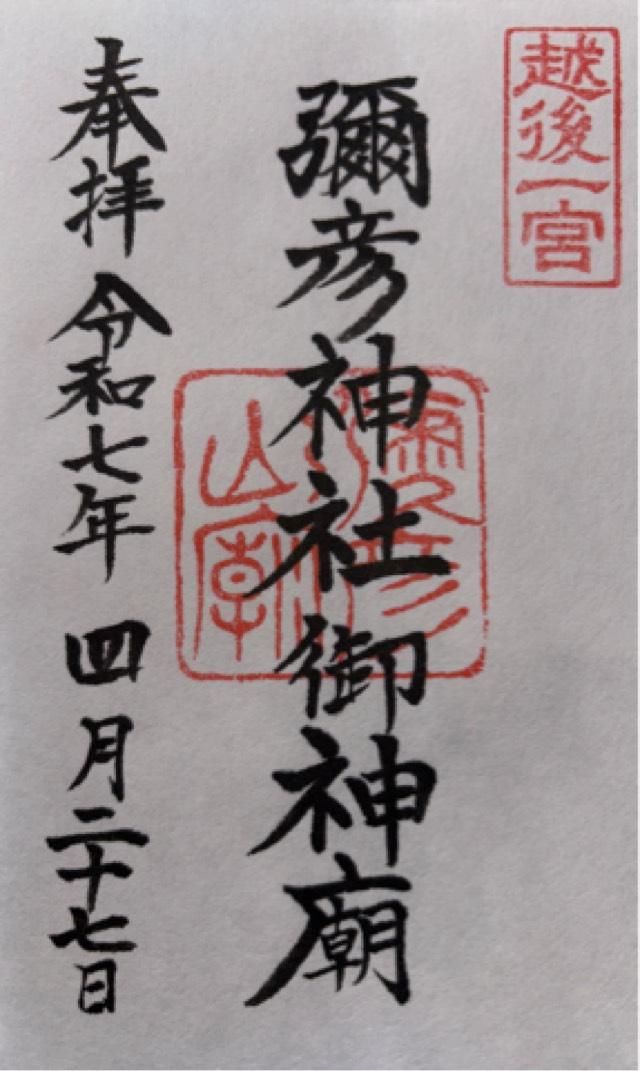 越後一宮
彌彦神社御神廟
奉拝 令和七年 四月二十七日